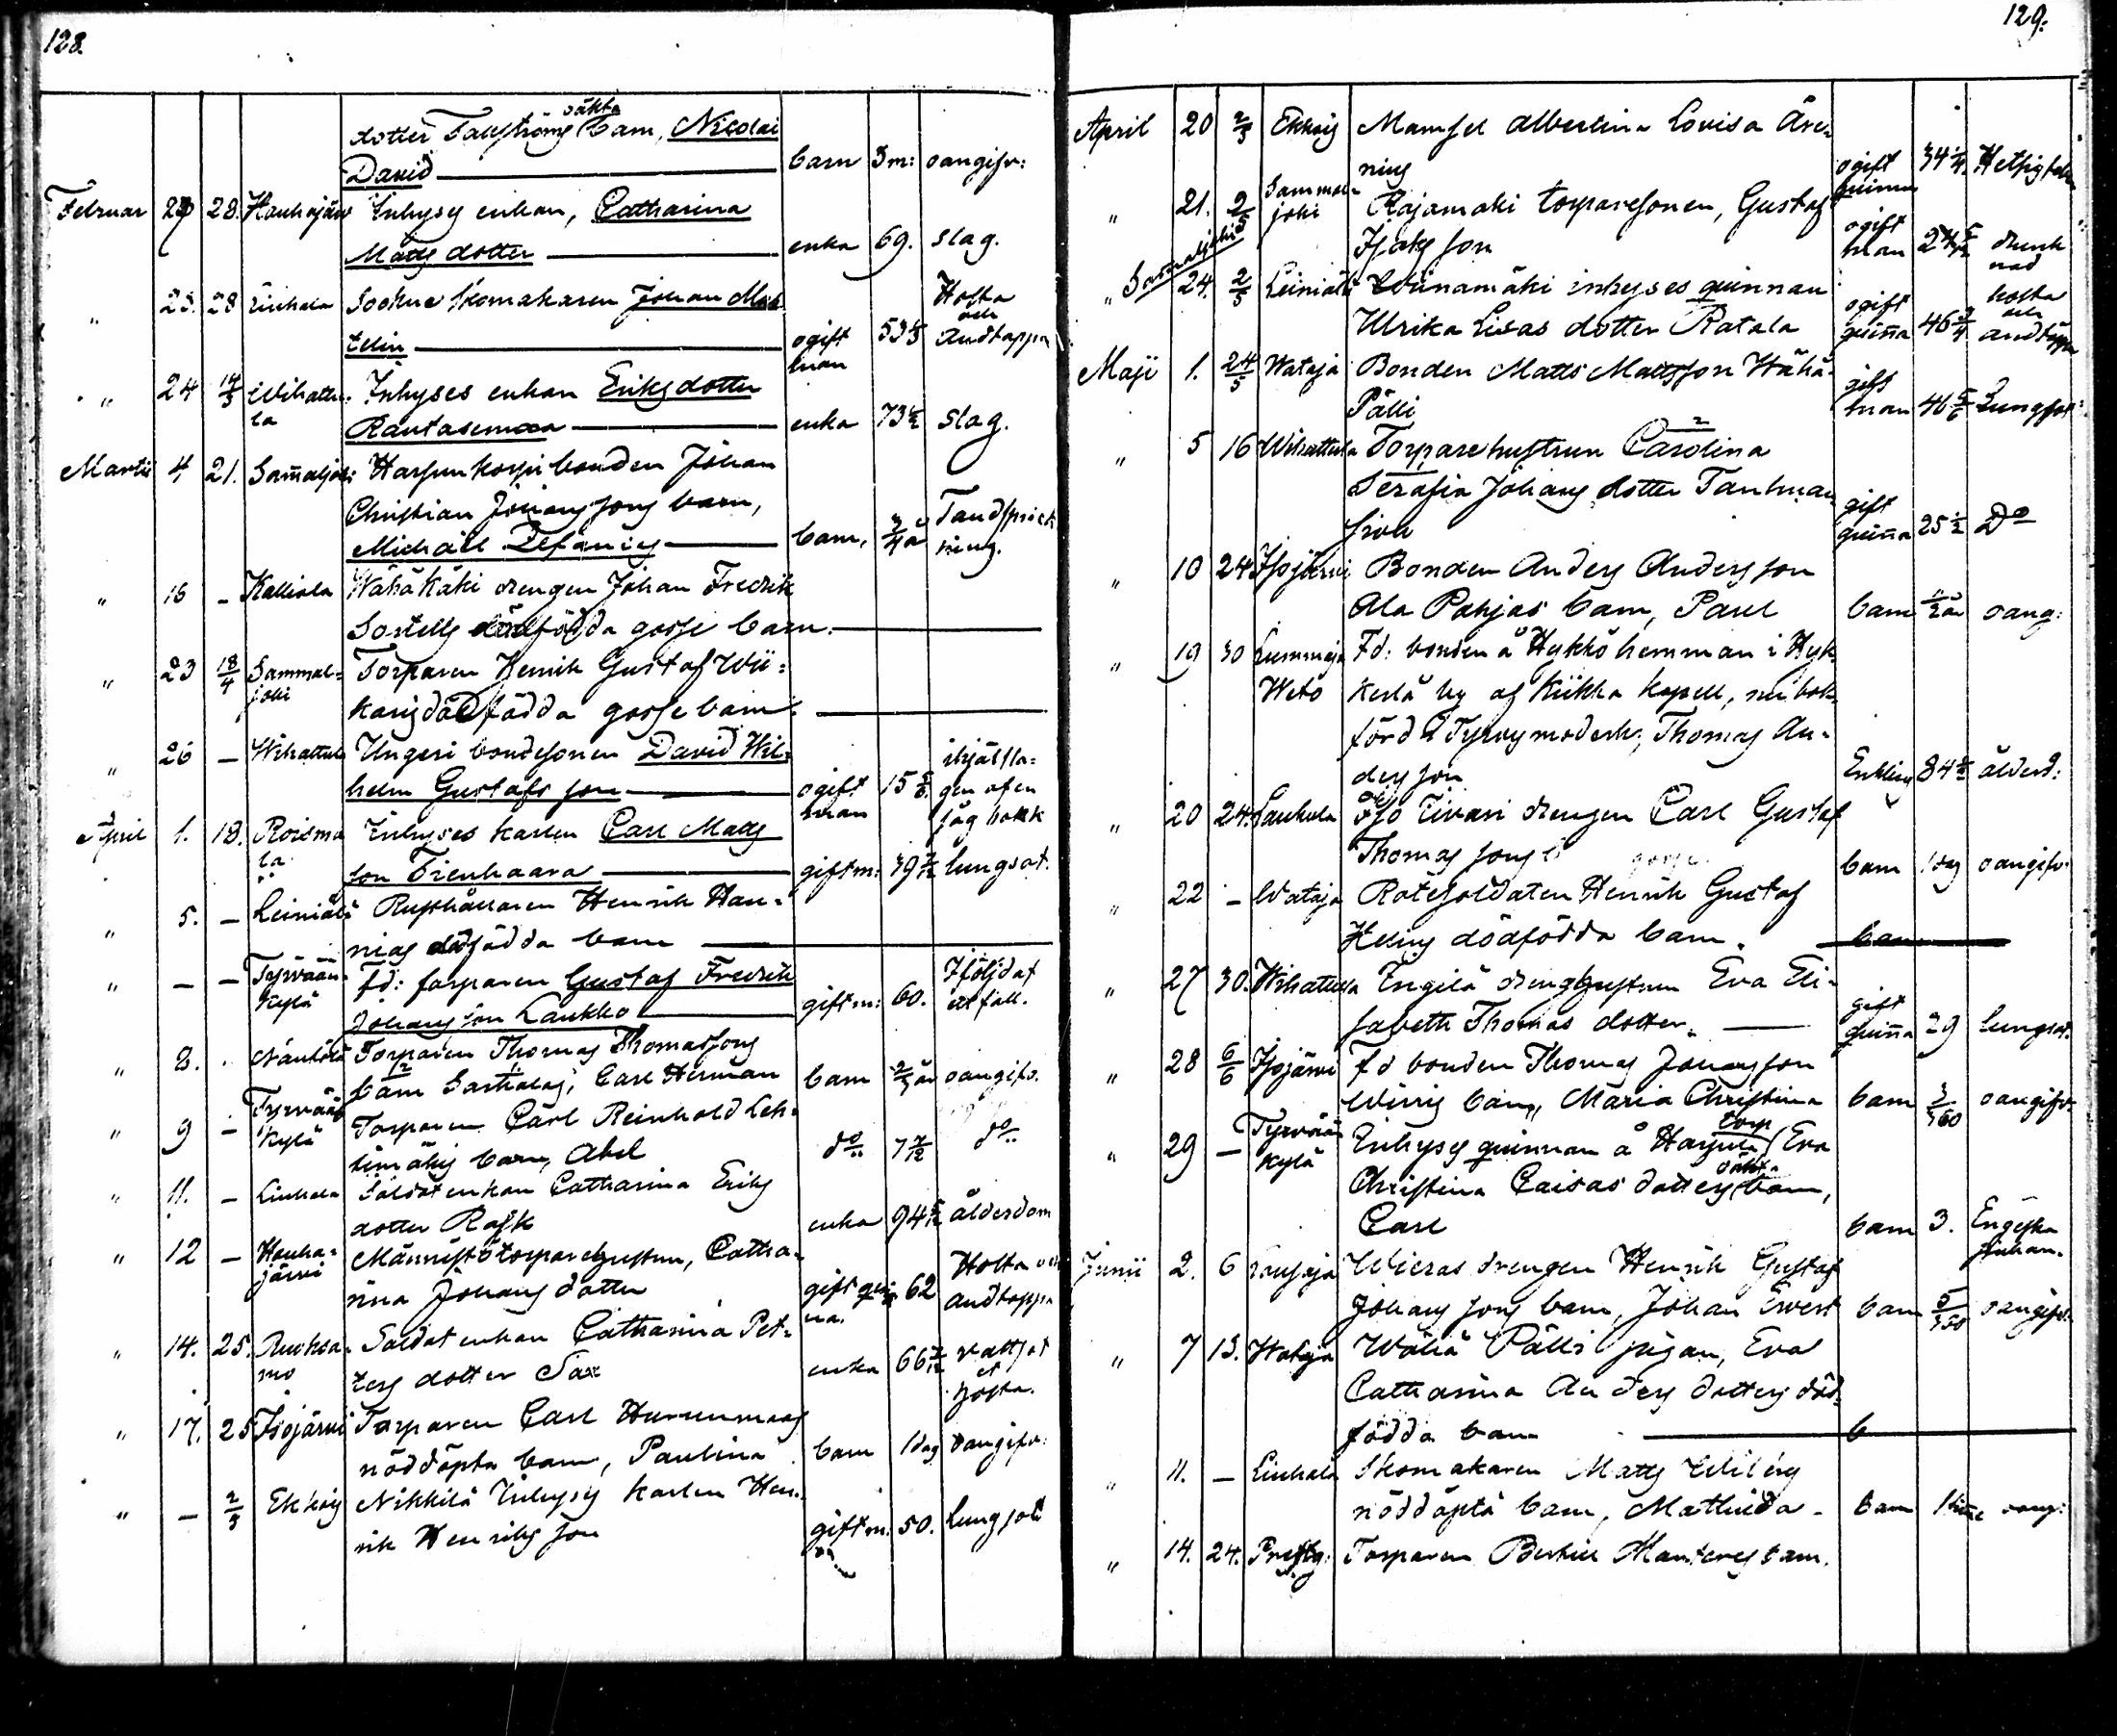 128.
oäkta
dotter Fallströms barn, Nicolai
David barn 3 m: oangifv:
Februar 27 28. Houhajärv Inhyses enkan, Catharina
Matts dotter enka 69. slag.
" 23. 28 Liuhala Sockne skomakaren Johan Mat
telin ogift man 53 1/3 Hosta och andtäppa
" 24 14/3 Wihattu- la Inhyses enkan Eriksdotter
Rautasemaa enka 73 1/2 slag.
Martii 4 21. Sammaljoki Harjunkorpi bonden Johan
Christian Johanssons barn,
Michaël barn, 3/4 år Tandsprick ning.
" 16 – Kalliala Wähä Käki drengen Johan Fredrik
dödfödda gosse barn.
" 23 18/4 Sammal= joki Torparen Henrik Gustaf Wii=
karis dödfödda gosse barn.
" 26 – Wihattula Ungeri bondesonen David Wil=
helm Gustafs son ogift man 15 5/6. ihjälsla= gen af en såg bock
April 1. 18. Roisma la Inhyses karlen Carl Matts
son Trenhaara gift m: 39 7/12 lungsot.
" 5. – Leiniälä Rusthållaren Henrik Han-
nias dödfödda barn
" – – Tyrvään- kylä Fd: torparen Gustaf Fredrik
Johansson Laukko gift m: 60. Ifölj daf
" 8. Näntölä Torparen Thomas Thomassons
barn Carl Herman barn 2/3 år oangifv.
" 9 – Tyrvään kylä Torparen Carl Reinhold Leh-
timäkis barn, Abel do 7 7/12 do
" 11. – Liuhala Soldat enkan Catharina Eriks
dotter Rask enka 94 5/12 ålderdom
" 12 – Houha- järvi Männistö torpare hustrun, Catha-
rina Johans dotter gift qvin na. 62 Hosta och andtäppa
" 14. 25. Ruoksa- mo Soldat enkan Catharina Pet-
ters dotter Sax enka 66 7/12 vattsot et hosta.
" 17. 25 Isojärvi Torparen Carl Hurunmaas
nöddöpta barn, Paulina barn 1 dag oangifv:
" – 2/5 Ekkois Nikkilä Inhyses karlen Hen-
rik Henriks son gift m: 50. lungsot
129.
April 20 2/5 Ekkois Mamsel Albertina Lovisa Are-
nius ogift quinna 34 1/4. Hetsig feber
" 21. 2/5 Sammal- joki Rajamäki torparesonen, Gustaf
Isaks son ogift man drunk nad
Sammaljoki
" 24. 2/5 Leiniälä Wiinamäki inhyses quinnan
Ulrika Lisas dotter Ratala ogift quinna 46 3/4 hosta och andtäppa
Maji 1. 24/5 Wataja Bonden Matts Mattsson Wähä-
Pälli gift man 46 5/6 Lungsot:
" 5 16 Wihattula Torpare hustrun Carolina
Serafia Johans dotter gift quinna 25 1/2 Do
" 10 24 Isojärvi Bonden Anders Andersson
Ala Pohjas barn, Paul barn 1/2 år oang:
" 19 30 Lummaja Weto Fd: bonden å Hykkö hemman i Hyk
kerlä by af Kiikka kapell, nu bok
förd i Tyrvis moderk:, Thomas An-
dersson Enkling 84 1/2 ålderd:
" 20 24. Laukula Iso Tivari drengen Carl Gustaf
Thomas sons gosse barn 1 dag oangifv.
" 22 – Wataja Rotesoldaten Henrik Gustaf
Helins dödfödda barn. barn
" 27 30. Wihattula Engilä dreng hustrun Eva Eli-
sabeth Thomas dotter. gift quinna 29 lungsot.
" 28 6/6 Isojärvi Fd bonden Thomas Johansson
barn, Maria Christina barn 3/360 oangifv.
" 29 – Tyrvään kylä Inhyses quinnan å Harjula torp (Eva
Christina Caisas dotters oäkta barn,
Carl barn 3. Engelska sjukan.
Junii 2. 6 Wieras drengen Henrik Gustaf
Johans sons barn, Johan Evert barn 5/360 oangifv.
" 7 13. Wataja Wähä Pälli pigan, Eva
Catharina Anders dotters död
födda barn b
" 11. – Liuhala Skomakaren Matts Wibergs
nöddöpta barn, Mathilda - barn 1 time oang:
" 14. 24. Prestg: Torparen Bertill Manteres barn.